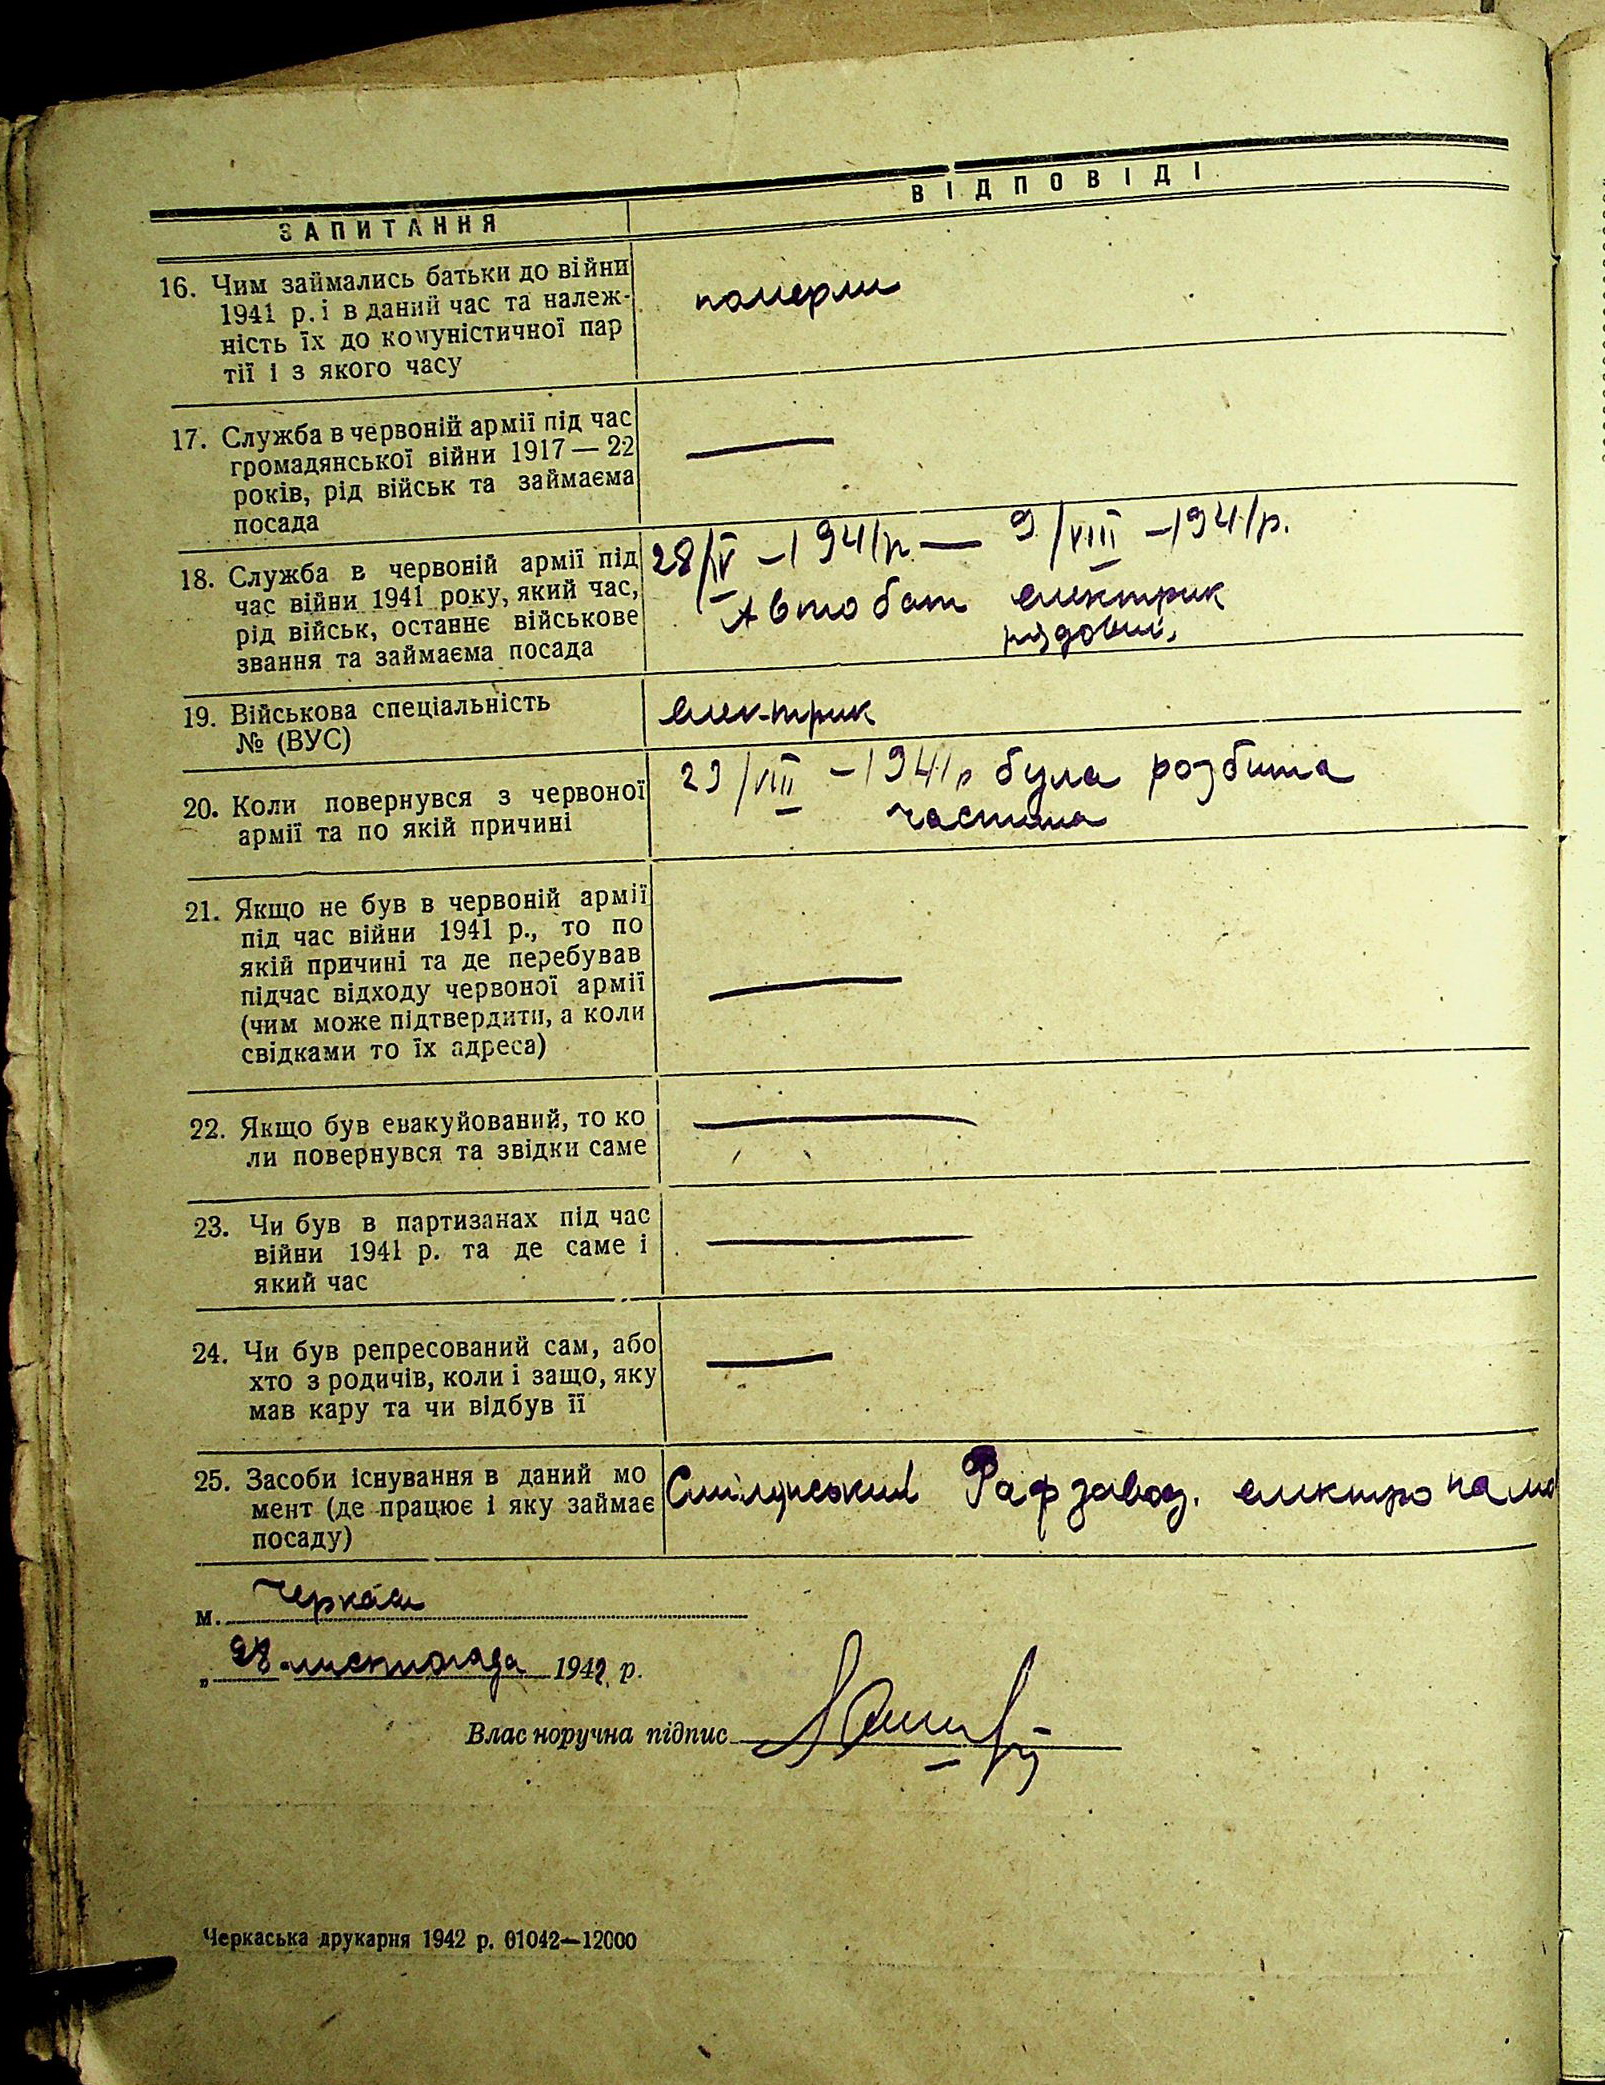 ЗАПИТАННЯ
ВІДПОВІДІ
16. Чим займались батьки до війни
1941 р. і в даний час та належ-
ність їх до комуністичної пар
тії і з якого часу
померли
17. Служба в червоній армії під час
громадянської війни 1917 — 22
років, рід військ та займаєма
посада
—
18. Служба в червоній армії під
час війни 1941 року, який час,
рід військ, останнє військове
звання та займаєма посада
28/IV – 1941 р — 9/VIII – 1941 р.
Автобат електрик
рядовий.
19. Військова спеціальність
№ (ВУС)
електрик
20. Коли повернувся з червоної
армії та по якій причині
29/VIII – 1941 р була розбита
частина
21. Якщо не був в червоній армії
під час війни 1941 р., то по
якій причині та де перебував
підчас відходу червоної армії
(чим може підтвердити, а коли
свідками то їх адреса)
—
22. Якщо був евакуйований, то ко
ли повернувся та звідки саме
—
23. Чи був в партизанах під час
війни 1941 р. та де саме і
який час
—
24. Чи був репресований сам, або
хто з родичів, коли і защо, яку
мав кару та чи відбув її
—
25. Засоби існування в даний мо
мент (де працює і яку займає
посаду)
Рафзавод. електро
м. Черкаси
„ 28 листопада 1942 р.
Власноручна підпис
Черкаська друкарня 1942 р. 01042—12000